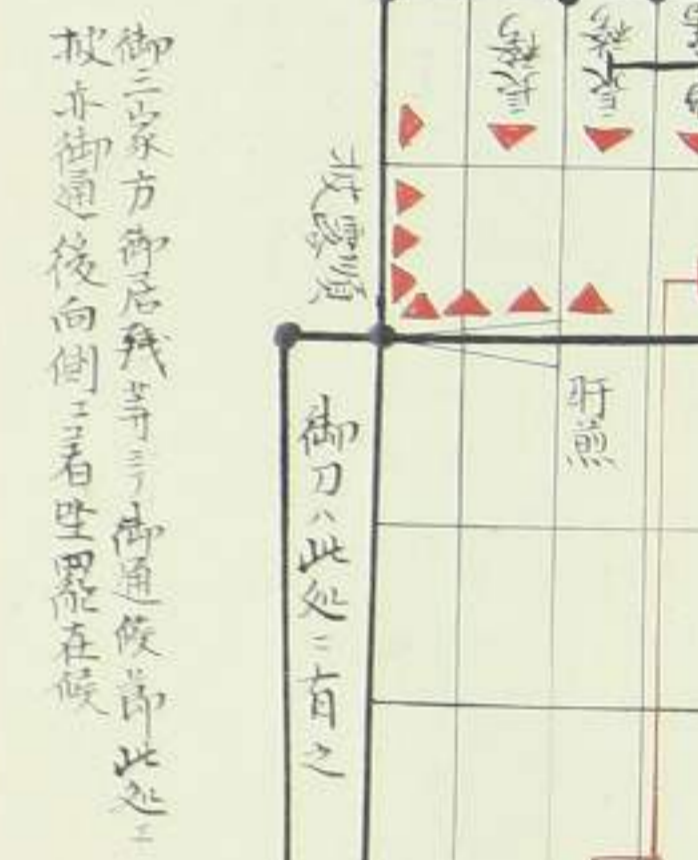 長袴
長袴
披露順
肝煎
御刀ハ此処ニ有之
御三家方御居残等ニ而御通候節此処ニ
披亦御通後向側江着坐罷在候